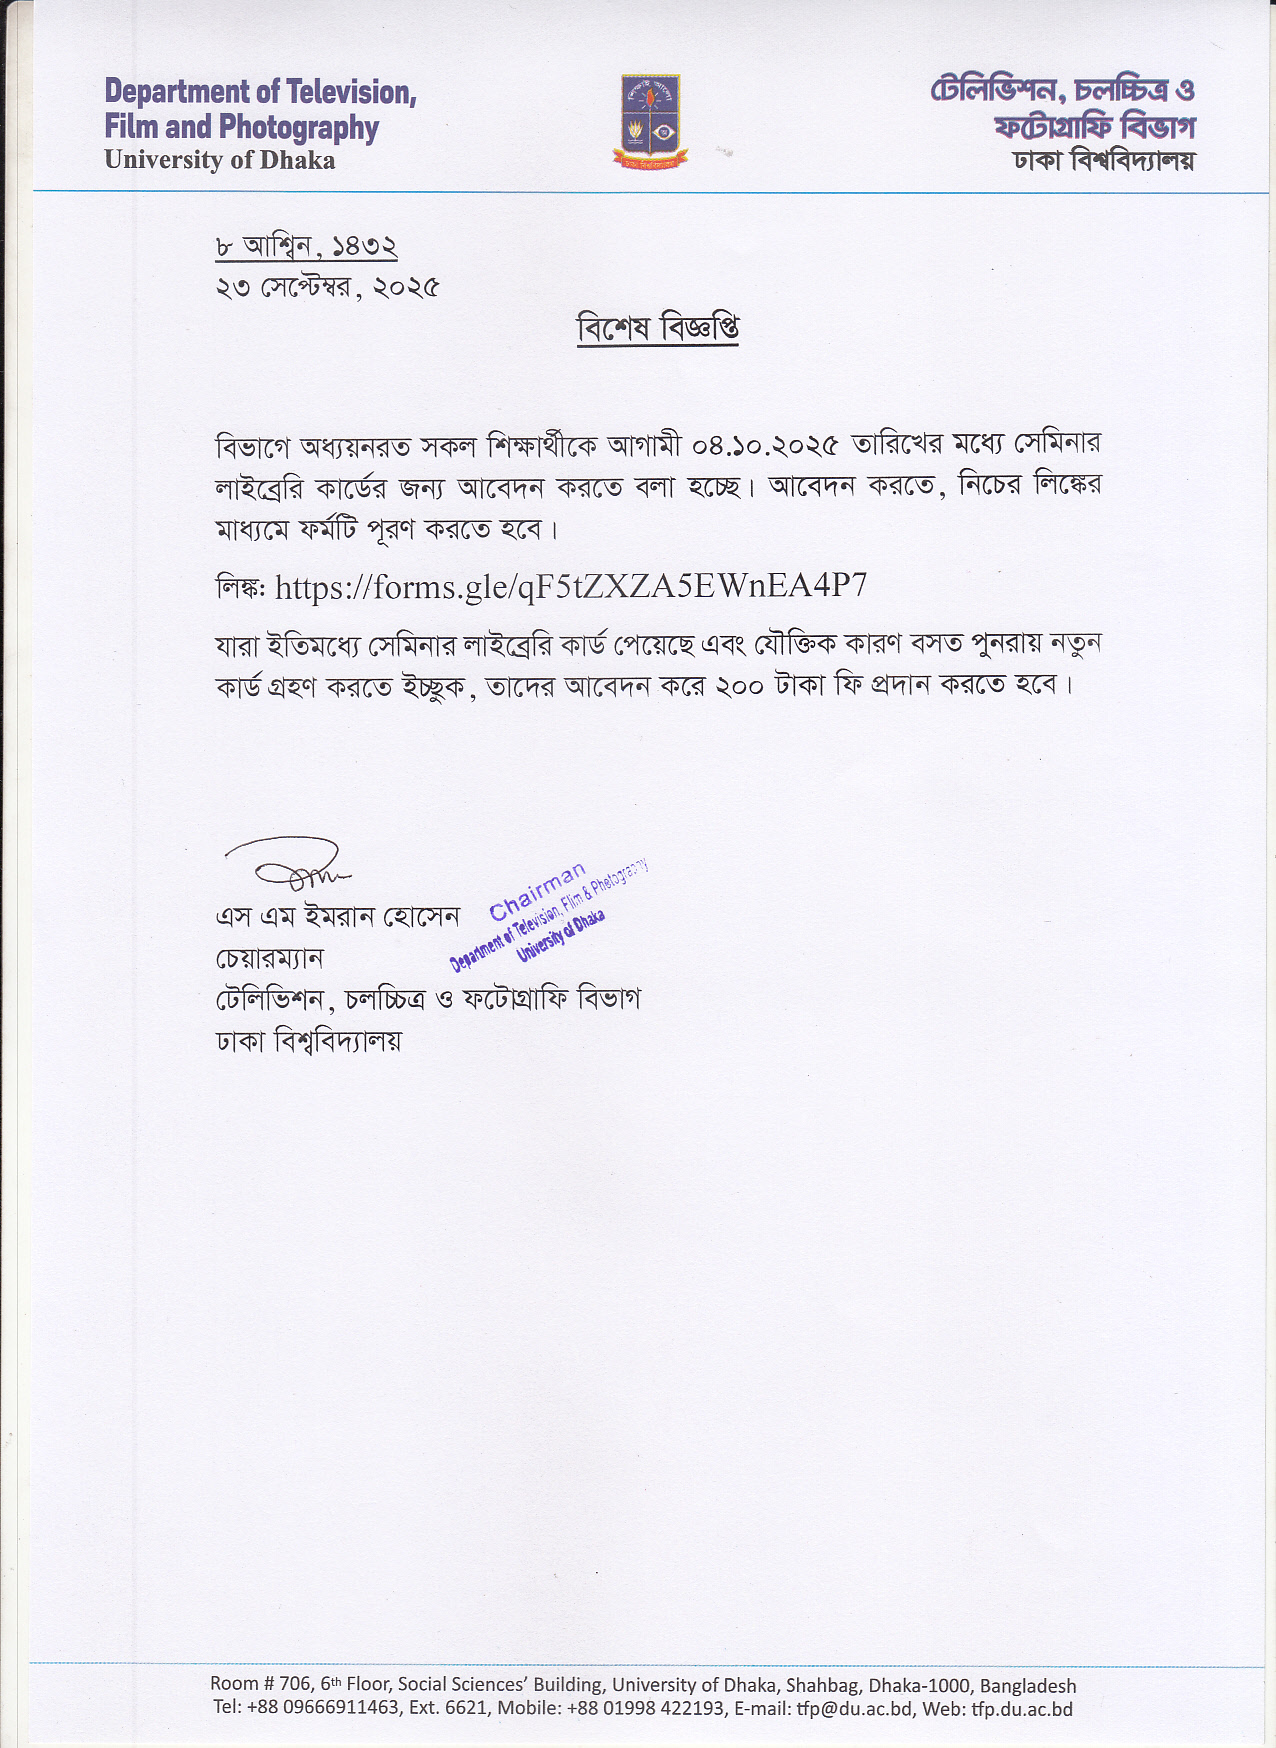 Department of Television,
Film and Photography
University of Dhaka
শিক্ষাই আলো
ঢাকা বিশ্ববিদ্যালয়
টেলিভিশন, চলচ্চিত্র ও
ফটোগ্রাফি বিভাগ
ঢাকা বিশ্ববিদ্যালয়
৮ আশ্বিন, ১৪৩২
২৩ সেপ্টেম্বর, ২০২৫
বিশেষ বিজ্ঞপ্তি
বিভাগে অধ্যয়নরত সকল শিক্ষার্থীকে আগামী ০৪.১০.২০২৫ তারিখের মধ্যে সেমিনার
লাইব্রেরি কার্ডের জন্য আবেদন করতে বলা হচ্ছে। আবেদন করতে, নিচের লিঙ্কের
মাধ্যমে ফর্মটি পূরণ করতে হবে।
লিঙ্ক: https://forms.gle/qF5tZXZA5EWnEA4P7
যারা ইতিমধ্যে সেমিনার লাইব্রেরি কার্ড পেয়েছে এবং যৌক্তিক কারণ বসত পুনরায় নতুন
কার্ড গ্রহণ করতে ইচ্ছুক, তাদের আবেদন করে ২০০ টাকা ফি প্রদান করতে হবে।
এস এম ইমরান হোসেন
চেয়ারম্যান
টেলিভিশন, চলচ্চিত্র ও ফটোগ্রাফি বিভাগ
ঢাকা বিশ্ববিদ্যালয়
Chairman
Department of Television, Flim & Photography
University of Dhaka
Room # 706, 6th Floor, Social Sciences' Building, University of Dhaka, Shahbag, Dhaka-1000, Bangladesh
Tel: +88 09666911463, Ext. 6621, Mobile: +88 01998 422193, E-mail: tfp@du.ac.bd, Web: tfp.du.ac.bd